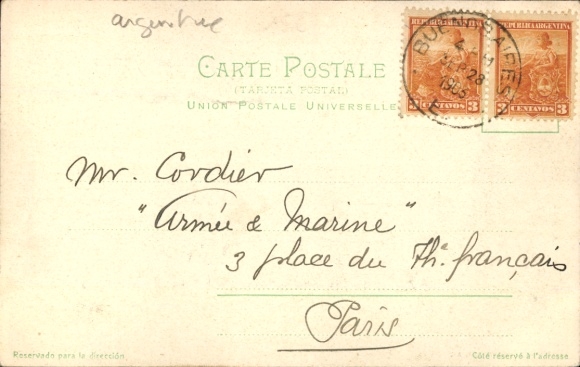 argentine
REPUBLICA ARGENTINA REPUBLICA ARGENTINA
BUENOS AIRES
28
1905
3 CENTAVOS 3 3 CENTAVOS 3
CARTE POSTALE
(TARJETA POSTAL)
UNION POSTALE UNIVERSELLE
Mr. Cordier
"Armée & Marine"
3 place du Th. français
Paris
Reservado para la dirección. Côté réservé à l'adresse